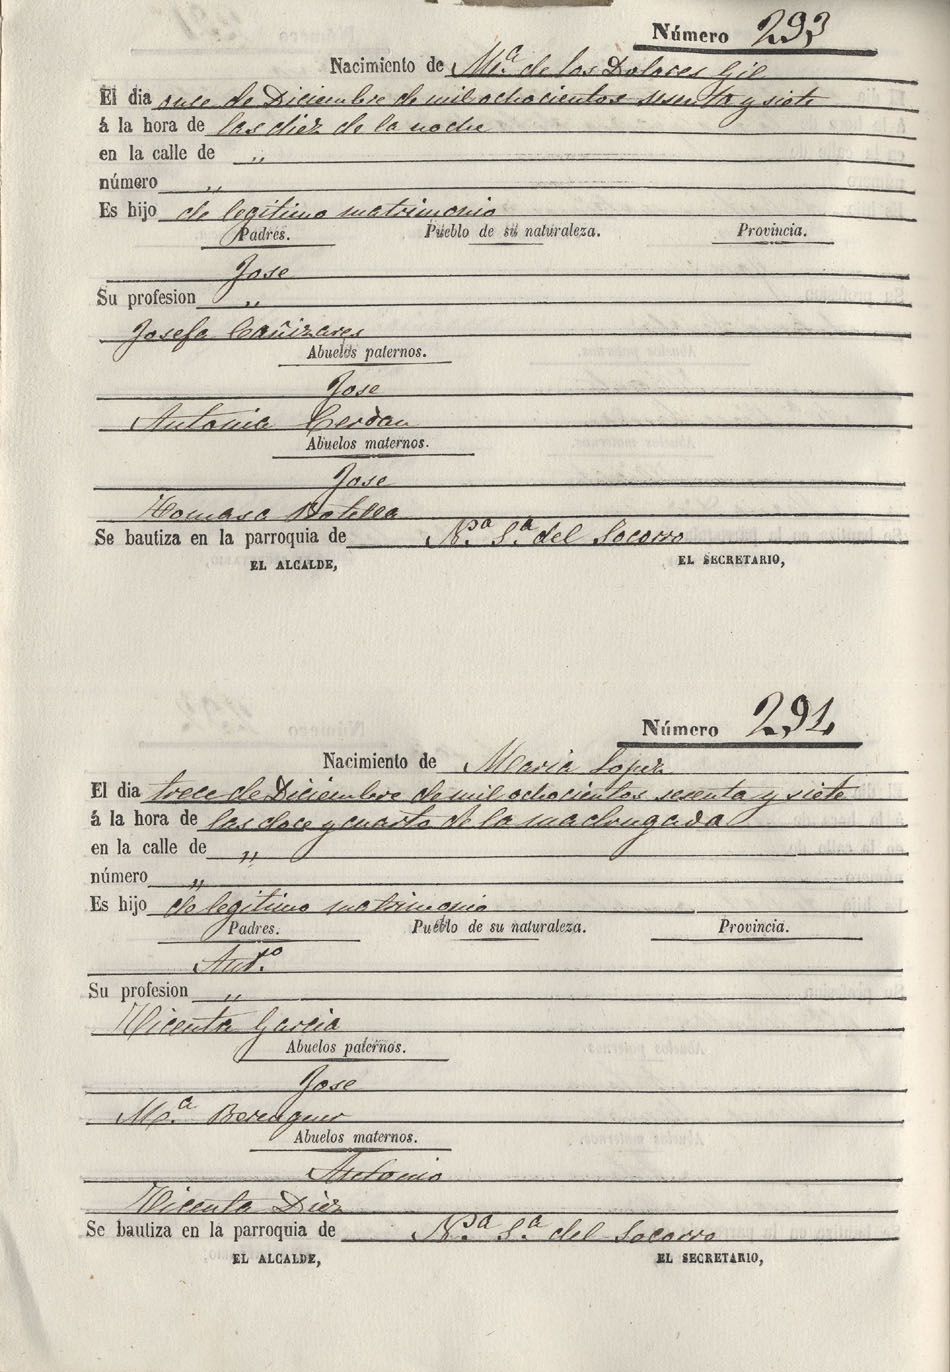 Número 293
Nacimiento de Mª de los Dolores Gil
El dia once de Diciembre de mil ochocientos sesenta y siete
á la hora de las diez de la noche
en la calle de "
número "
Es hijo de legitimo matrimonio
Padres. Pueblo de su naturaleza. Provincia.
Jose
Su profesion "
Josefa Cañizares
Abuelos paternos.
Jose
Antonia Cerdan
Abuelos maternos.
Jose
Tomasa Botella
Se bautiza en la parroquia de Nª Sª del Socorro
EL ALCALDE, EL SECRETARIO,
Número 294
Nacimiento de Maria Lopez
El dia trece de Diciembre de mil ochocientos sesenta y siete
á la hora de las doce y cuarto de la madrugada
en la calle de "
número "
Es hijo de legitimo matrimonio
Padres. Pueblo de su naturaleza. Provincia.
Antº
Su profesion "
Vicenta Garcia
Abuelos paternos.
Jose
Mª Berenguer
Abuelos maternos.
Antonio
Vicenta Diez
Se bautiza en la parroquia de Nª Sª del Socorro
EL ALCALDE, EL SECRETARIO,